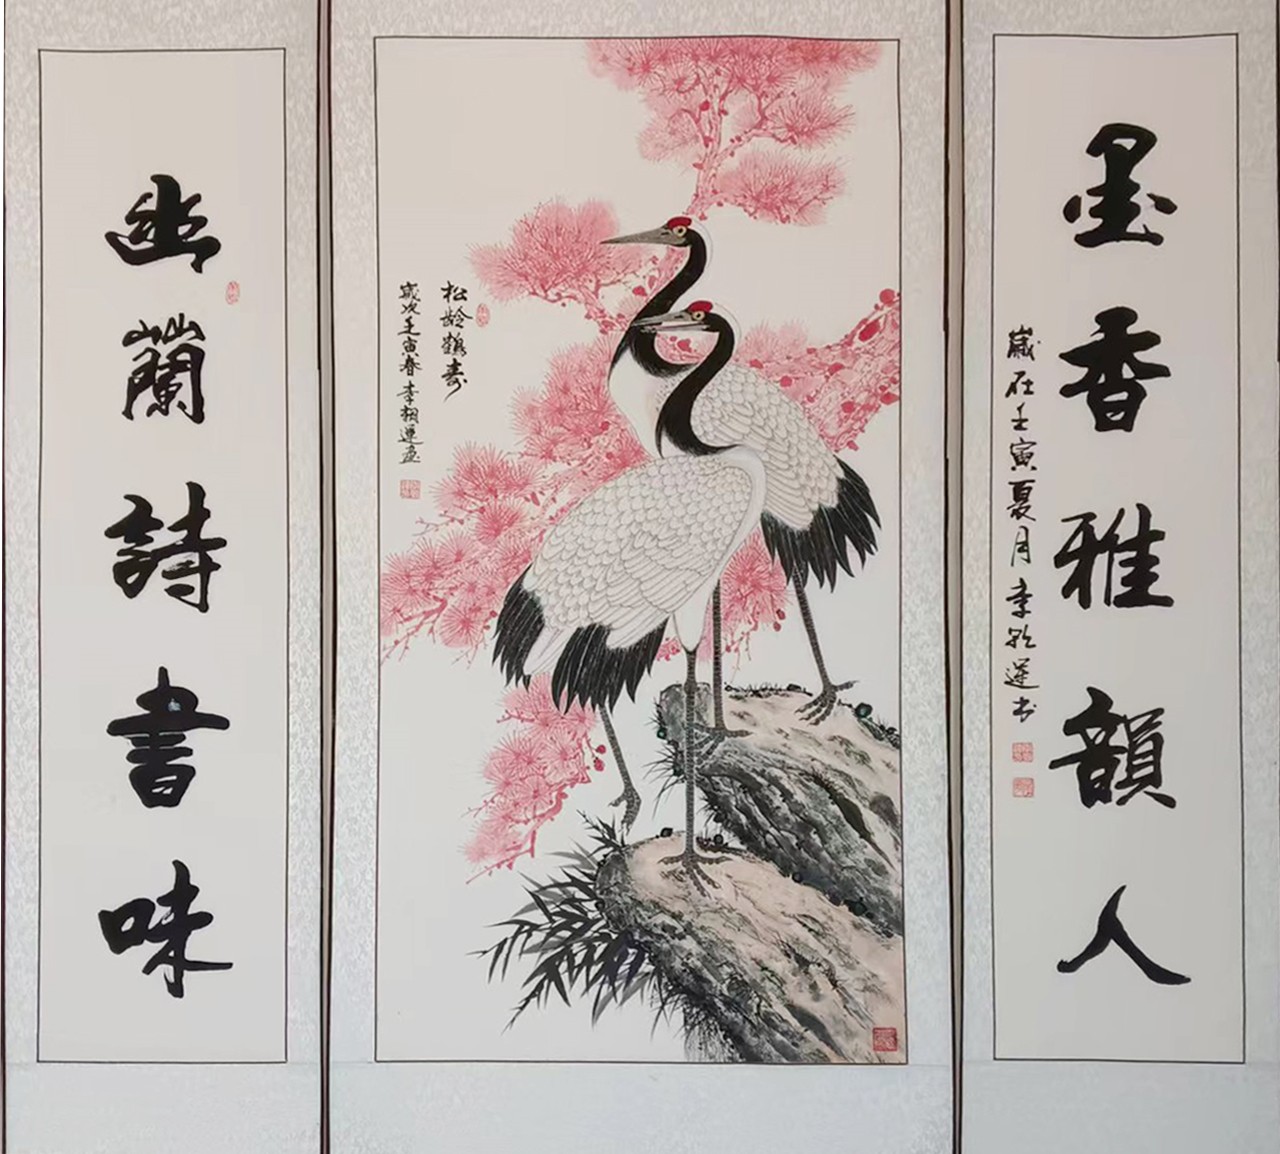 幽蘭詩書味
松龄鶴寿
歲次壬寅春李画
墨香雅韻人
歲在壬寅夏月李书